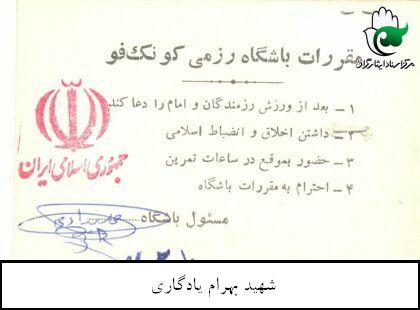 مرکز اسناد ایثارگران
مقررات باشگاه رزمی کونگ‌فو
۱ـ بعد از ورزش رزمندگان و امام را دعا کند
۲ـ داشتن اخلاق و انضباط اسلامی
۳ـ حضور بموقع در ساعات تمرین
۴ـ احترام به مقررات باشگاه
جمهوری اسلامی ایران
مسئول باشگاه
شهید بهرام یادگاری